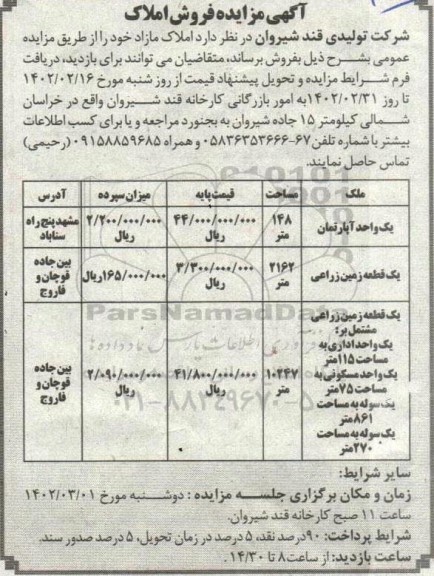 آگهی مزایده فروش املاک
شرکت تولیدی قند شیروان در نظر دارد املاک مازاد خود را از طریق مزایده
عمومی بشرح ذیل بفروش برساند، متقاضیان می توانند برای بازدید، دریافت
فرم شرایط مزایده و تحویل پیشنهاد قیمت از روز شنبه مورخ ۱۴۰۲/۰۲/۱۶
تا روز ۱۴۰۲/۰۲/۳۱ به امور بازرگانی کارخانه قند شیروان واقع در خراسان
شمالی کیلومتر ۱۵ جاده شیروان به بجنورد مراجعه و یا برای کسب اطلاعات
بیشتر با شماره تلفن ۶۷-۰۵۸۳۶۳۵۳۶۶۶ و همراه ۰۹۱۵۸۸۵۹۶۸۵ (رحیمی)
تماس حاصل نمایند.
ملک مساحت قیمت پایه میزان سپرده آدرس
یک واحد آپارتمان ۱۴۸ متر ۴۴/۰۰۰/۰۰۰/۰۰۰ ریال ۲/۲۰۰/۰۰۰/۰۰۰ ریال مشهد پنج راه سناباد
یک قطعه زمین زراعی ۲۱۶۲ متر ۳/۳۰۰/۰۰۰/۰۰۰ ریال ۱۶۵/۰۰۰/۰۰۰ ریال بین جاده قوچان و فاروج
یک قطعه زمین زراعی
مشتمل بر:
یک واحد اداری به
مساحت ۱۱۵ متر
یک واحد مسکونی به
مساحت ۷۵ متر
یک سوله به مساحت
۸۶۱ متر
یک سوله به مساحت
۲۷۰ متر
۱۰۲۴۷ متر ۴۱/۸۰۰/۰۰۰/۰۰۰ ریال ۲/۰۹۰/۰۰۰/۰۰۰ ریال بین جاده قوچان و فاروج
سایر شرایط:
زمان و مکان برگزاری جلسه مزایده : دوشنبه مورخ ۱۴۰۲/۰۳/۰۱
ساعت ۱۱ صبح کارخانه قند شیروان.
شرایط پرداخت: ۹۰ درصد نقد، ۵ درصد در زمان تحویل، ۵ درصد صدور سند.
ساعت بازدید: از ساعت ۸ تا ۱۴/۳۰.
ParsNamadData
۰۲۱-۸۸۳۴۹۶۷۰-۵